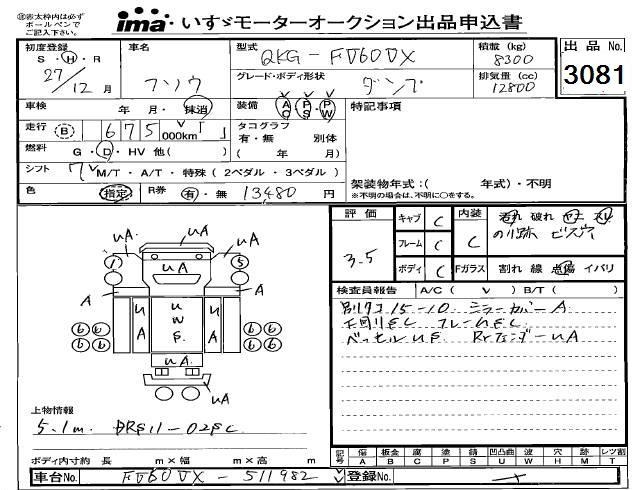 ㊟赤太枠内は必ず
ボールペンで
ご記入下さい。
ima いすゞモーターオークション出品申込書
初度登録
S・H・R
27 / 12 月
車名
フソウ
型式
QKG-FV60VX
積載 (kg)
8300
出品 No.
3081
グレード・ボディ形状
ダンプ
排気量 (cc)
12800
車検 年 月・抹消
装備 AC PS PW
特記事項
走行 B 675 000km
タコグラフ
有・無 別体
( 年 月)
燃料 G・D・HV 他( )
シフト 7 M/T・A/T・特殊(2ペダル・3ペダル)
架装物年式:( 年式)・不明
※不明の場合は、不明に○をする。
色 指定 R券 有・無 13,480 円
評価
3.5
キャブ C
フレーム C
ボディ C
内装 C
汚れ 破れ ヤニ スレ
のり跡 ビス穴
Fガラス 割れ 線 点傷 イバリ
検査員報告 A/C( ∨ ) B/T( )
別タコ 15-10 ミラーカバーA
下回りEC フレームEC
ベッセルUE Rrフェンダー UA
UA
UA
UA
1
5
A
A
UA
UWE
UA
6 6
6 6
6 6
6 6
UA
UA
上物情報
5.1m DRS11-02SC
ボディ内寸約 長 m×幅 m×高 m
記号
傷 A
板金 B
腐 C
塗 P
錆 S
凹凸曲 U
波 W
穴 H
跡 M
レツ割 T
車台No. FV60VX-511982
登録No.